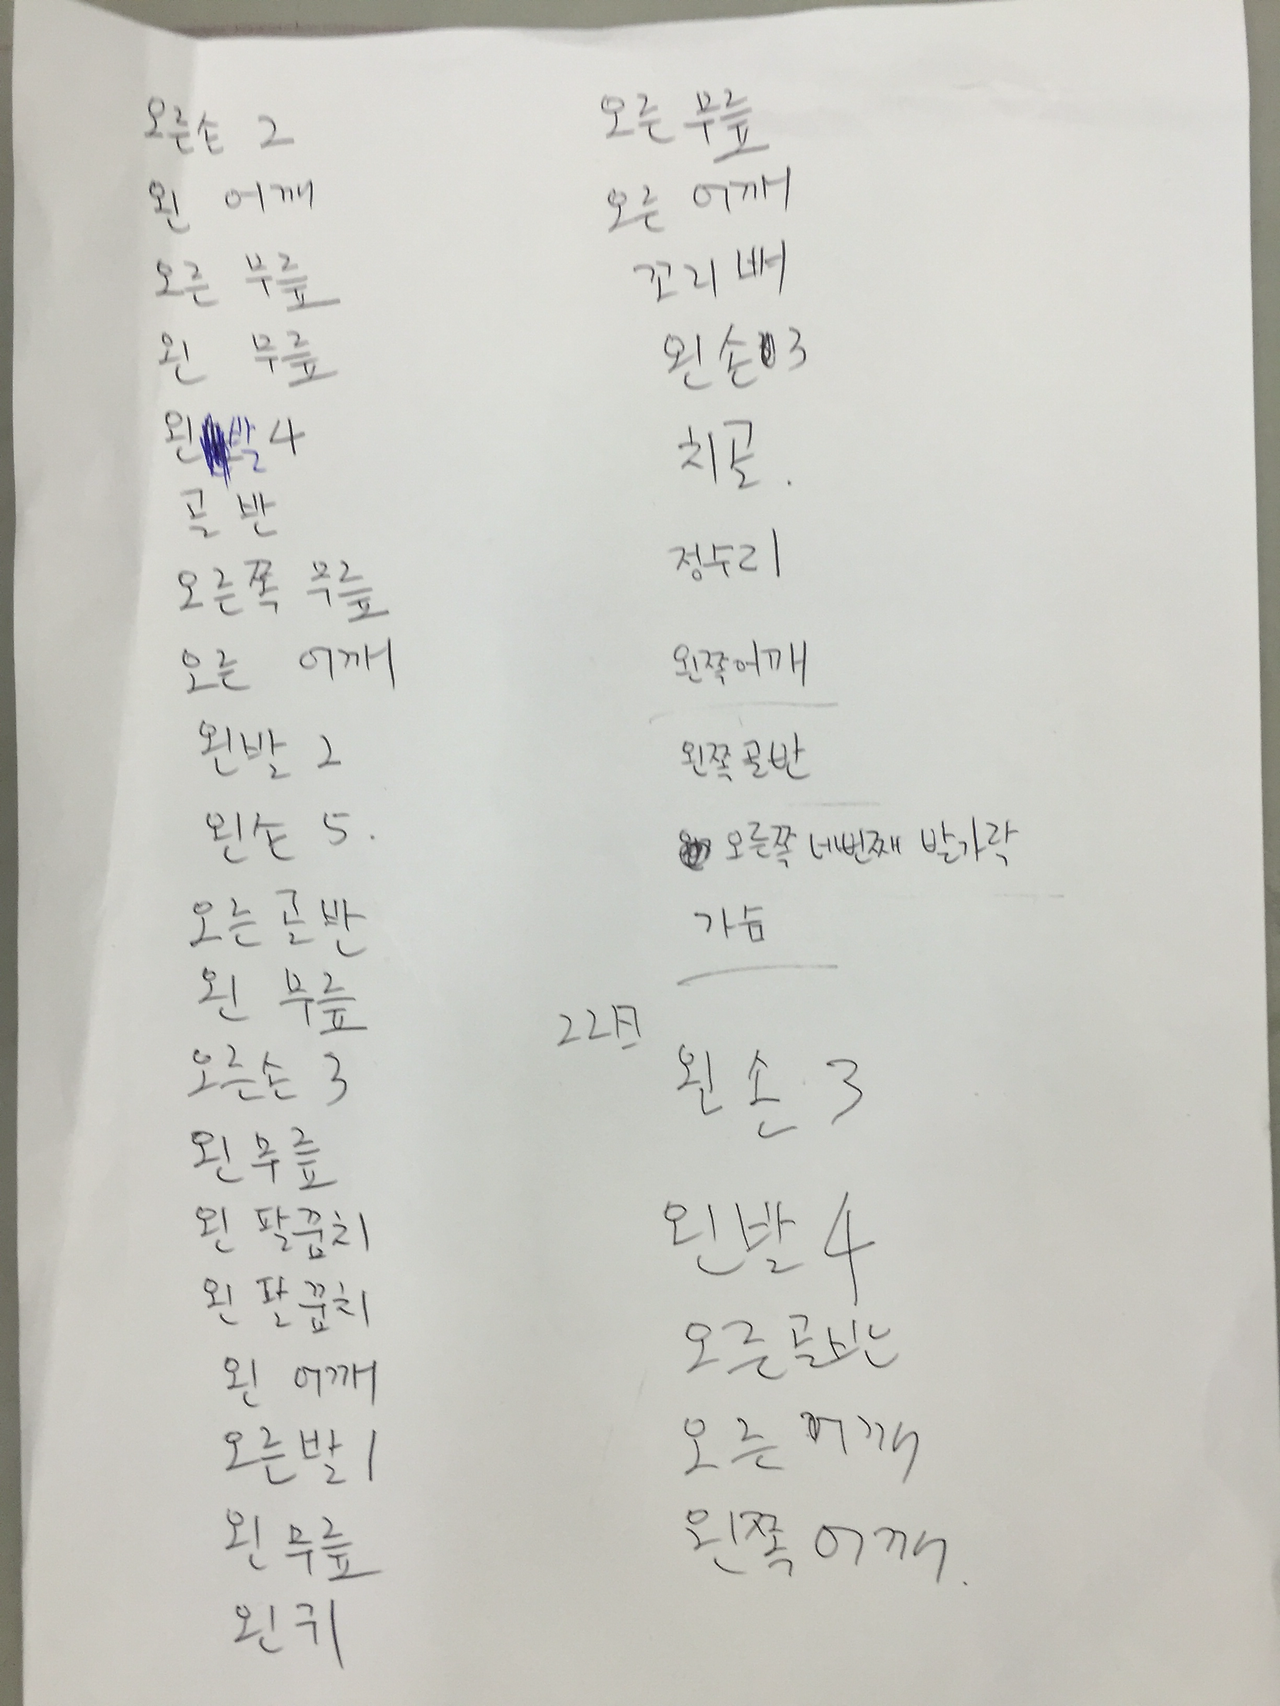 오른손 2
왼 어깨
오른 무릎
왼 무릎
왼발 4
골반
오른쪽 무릎
오른 어깨
왼발 2
왼손 5.
오른골반
왼 무릎
오른손 3
왼무릎
왼 팔꿈치
왼 팔꿈치
왼 어깨
오른발 1
왼무릎
왼귀
오른 무릎
오른 어깨
꼬리뼈
왼손 3
치골.
정수리
왼쪽어깨
왼쪽골반
오른쪽 네번째 발가락
가슴
22日
왼손 3
왼발 4
오른골반
오른 어깨
왼쪽 어깨.